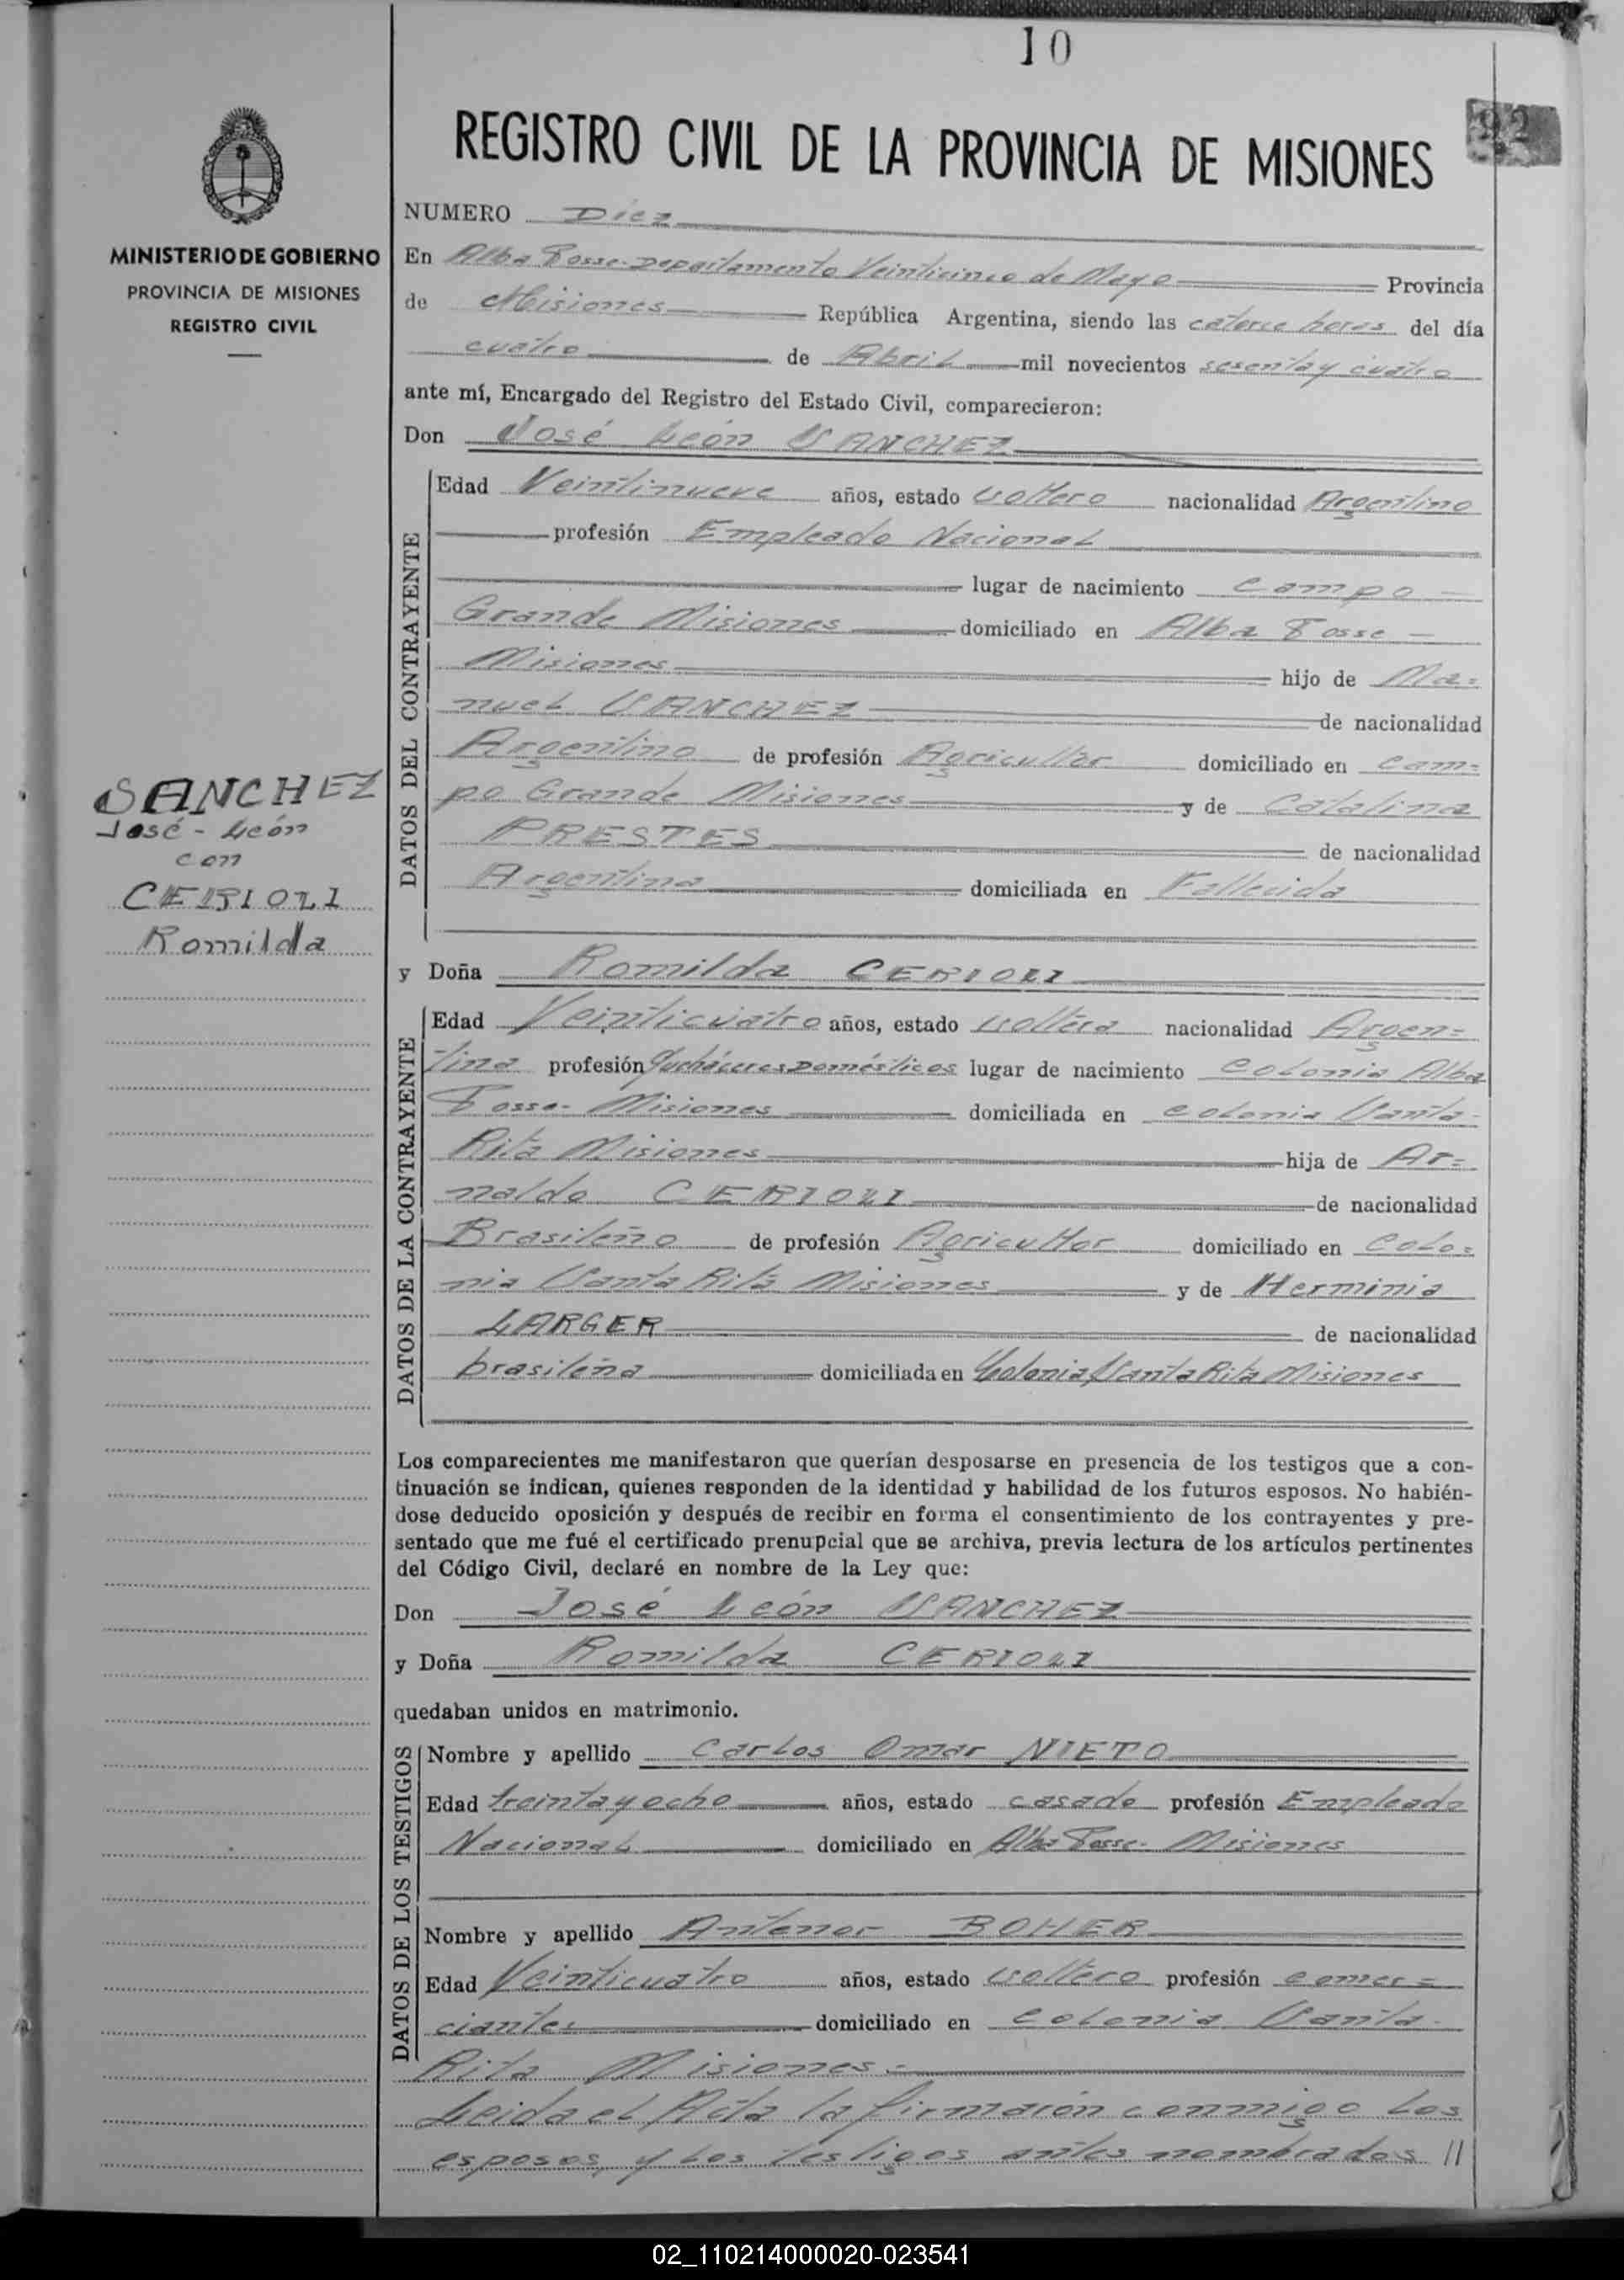 10
92
REGISTRO CIVIL DE LA PROVINCIA DE MISIONES
MINISTERIO DE GOBIERNO
PROVINCIA DE MISIONES
REGISTRO CIVIL
SANCHEZ
José - León
con
CERIOLI
Romilda
NUMERO Diez
En Alba Posse-Departamento Veinticinco de Mayo Provincia
de Misiones República Argentina, siendo las catorce horas del día
cuatro de Abril mil novecientos sesenta y cuatro
ante mí, Encargado del Registro del Estado Civil, comparecieron:
Don José León SANCHEZ
DATOS DEL CONTRAYENTE
Edad Veintinueve años, estado soltero nacionalidad Argentino
profesión Empleado Nacional
lugar de nacimiento Campo
Grande Misiones domiciliado en Alba Posse
Misiones hijo de Ma=
nuel SANCHEZ de nacionalidad
Argentino de profesión Agricultor domiciliado en Cam=
po Grande Misiones y de Catalina
PRESTES de nacionalidad
Argentina domiciliada en Fallecida
y Doña Romilda CERIOLI
DATOS DE LA CONTRAYENTE
Edad Veinticuatro años, estado soltera nacionalidad Argen=
tina profesión Quehaceres Domésticos lugar de nacimiento Colonia Alba
Posse- Misiones domiciliada en Colonia Santa
Rita Misiones hija de Ar=
naldo CERIOLI de nacionalidad
Brasileño de profesión Agricultor domiciliado en Colo=
nia Santa Rita Misiones y de Herminia
LARGER de nacionalidad
brasileña domiciliada en Colonia Santa Rita Misiones
Los comparecientes me manifestaron que querían desposarse en presencia de los testigos que a con-
tinuación se indican, quienes responden de la identidad y habilidad de los futuros esposos. No habién-
dose deducido oposición y después de recibir en forma el consentimiento de los contrayentes y pre-
sentado que me fué el certificado prenupcial que se archiva, previa lectura de los artículos pertinentes
del Código Civil, declaré en nombre de la Ley que:
Don José León SANCHEZ
y Doña Romilda CERIOLI
quedaban unidos en matrimonio.
DATOS DE LOS TESTIGOS
Nombre y apellido Carlos Omar NIETO
Edad treinta y ocho años, estado casado profesión Empleado
Nacional domiciliado en Alba Posse- Misiones
Nombre y apellido Antenor BOHER
Edad Veinticuatro años, estado soltero profesión comer=
ciante domiciliado en Colonia Santa
Rita Misiones.-
Leida el Acta la firmarón conmigo los
esposos, y los testigos antes nombrados //
02_110214000020-023541